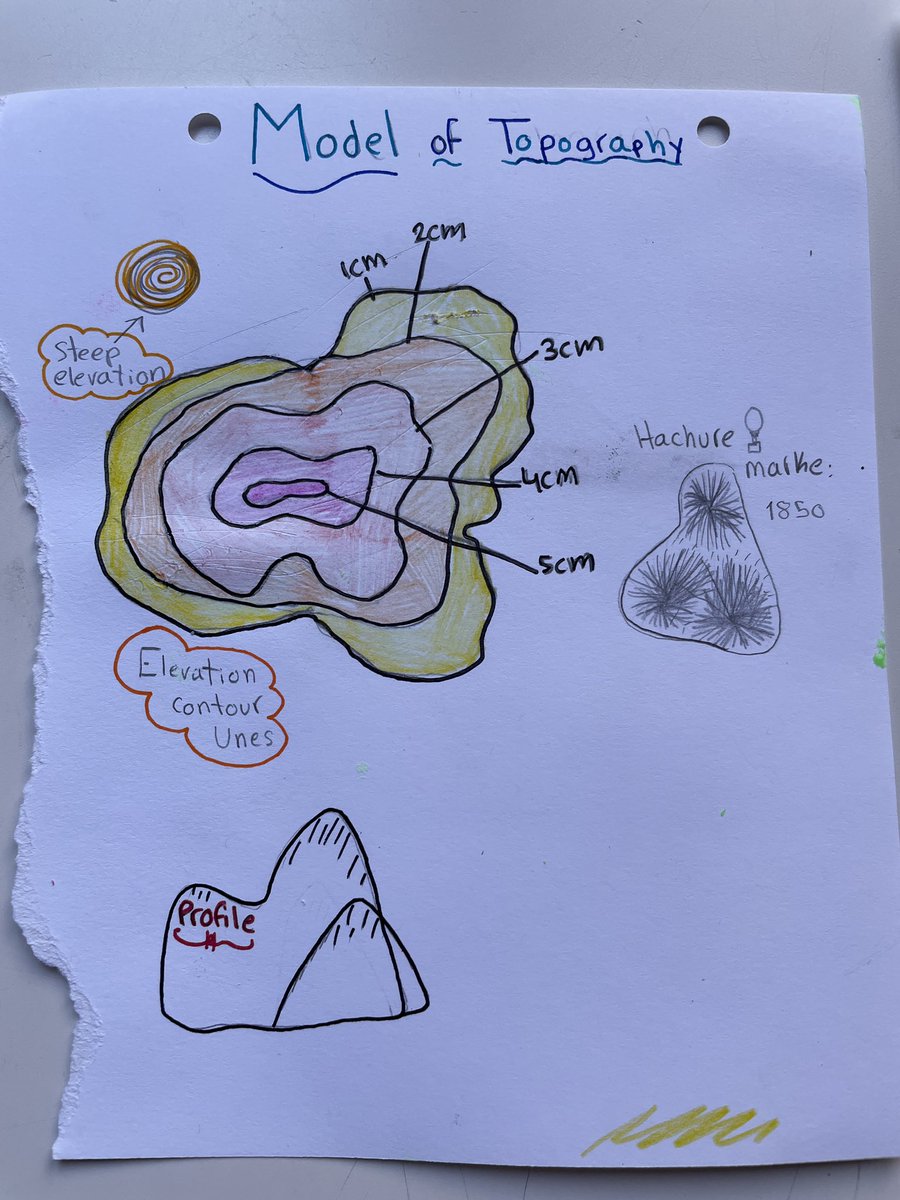 Model of Topography
2cm
1cm
3cm
Steep
elevation
4cm
5cm
Hachure
marke:
1850
Elevation
contour
Unes
Profile